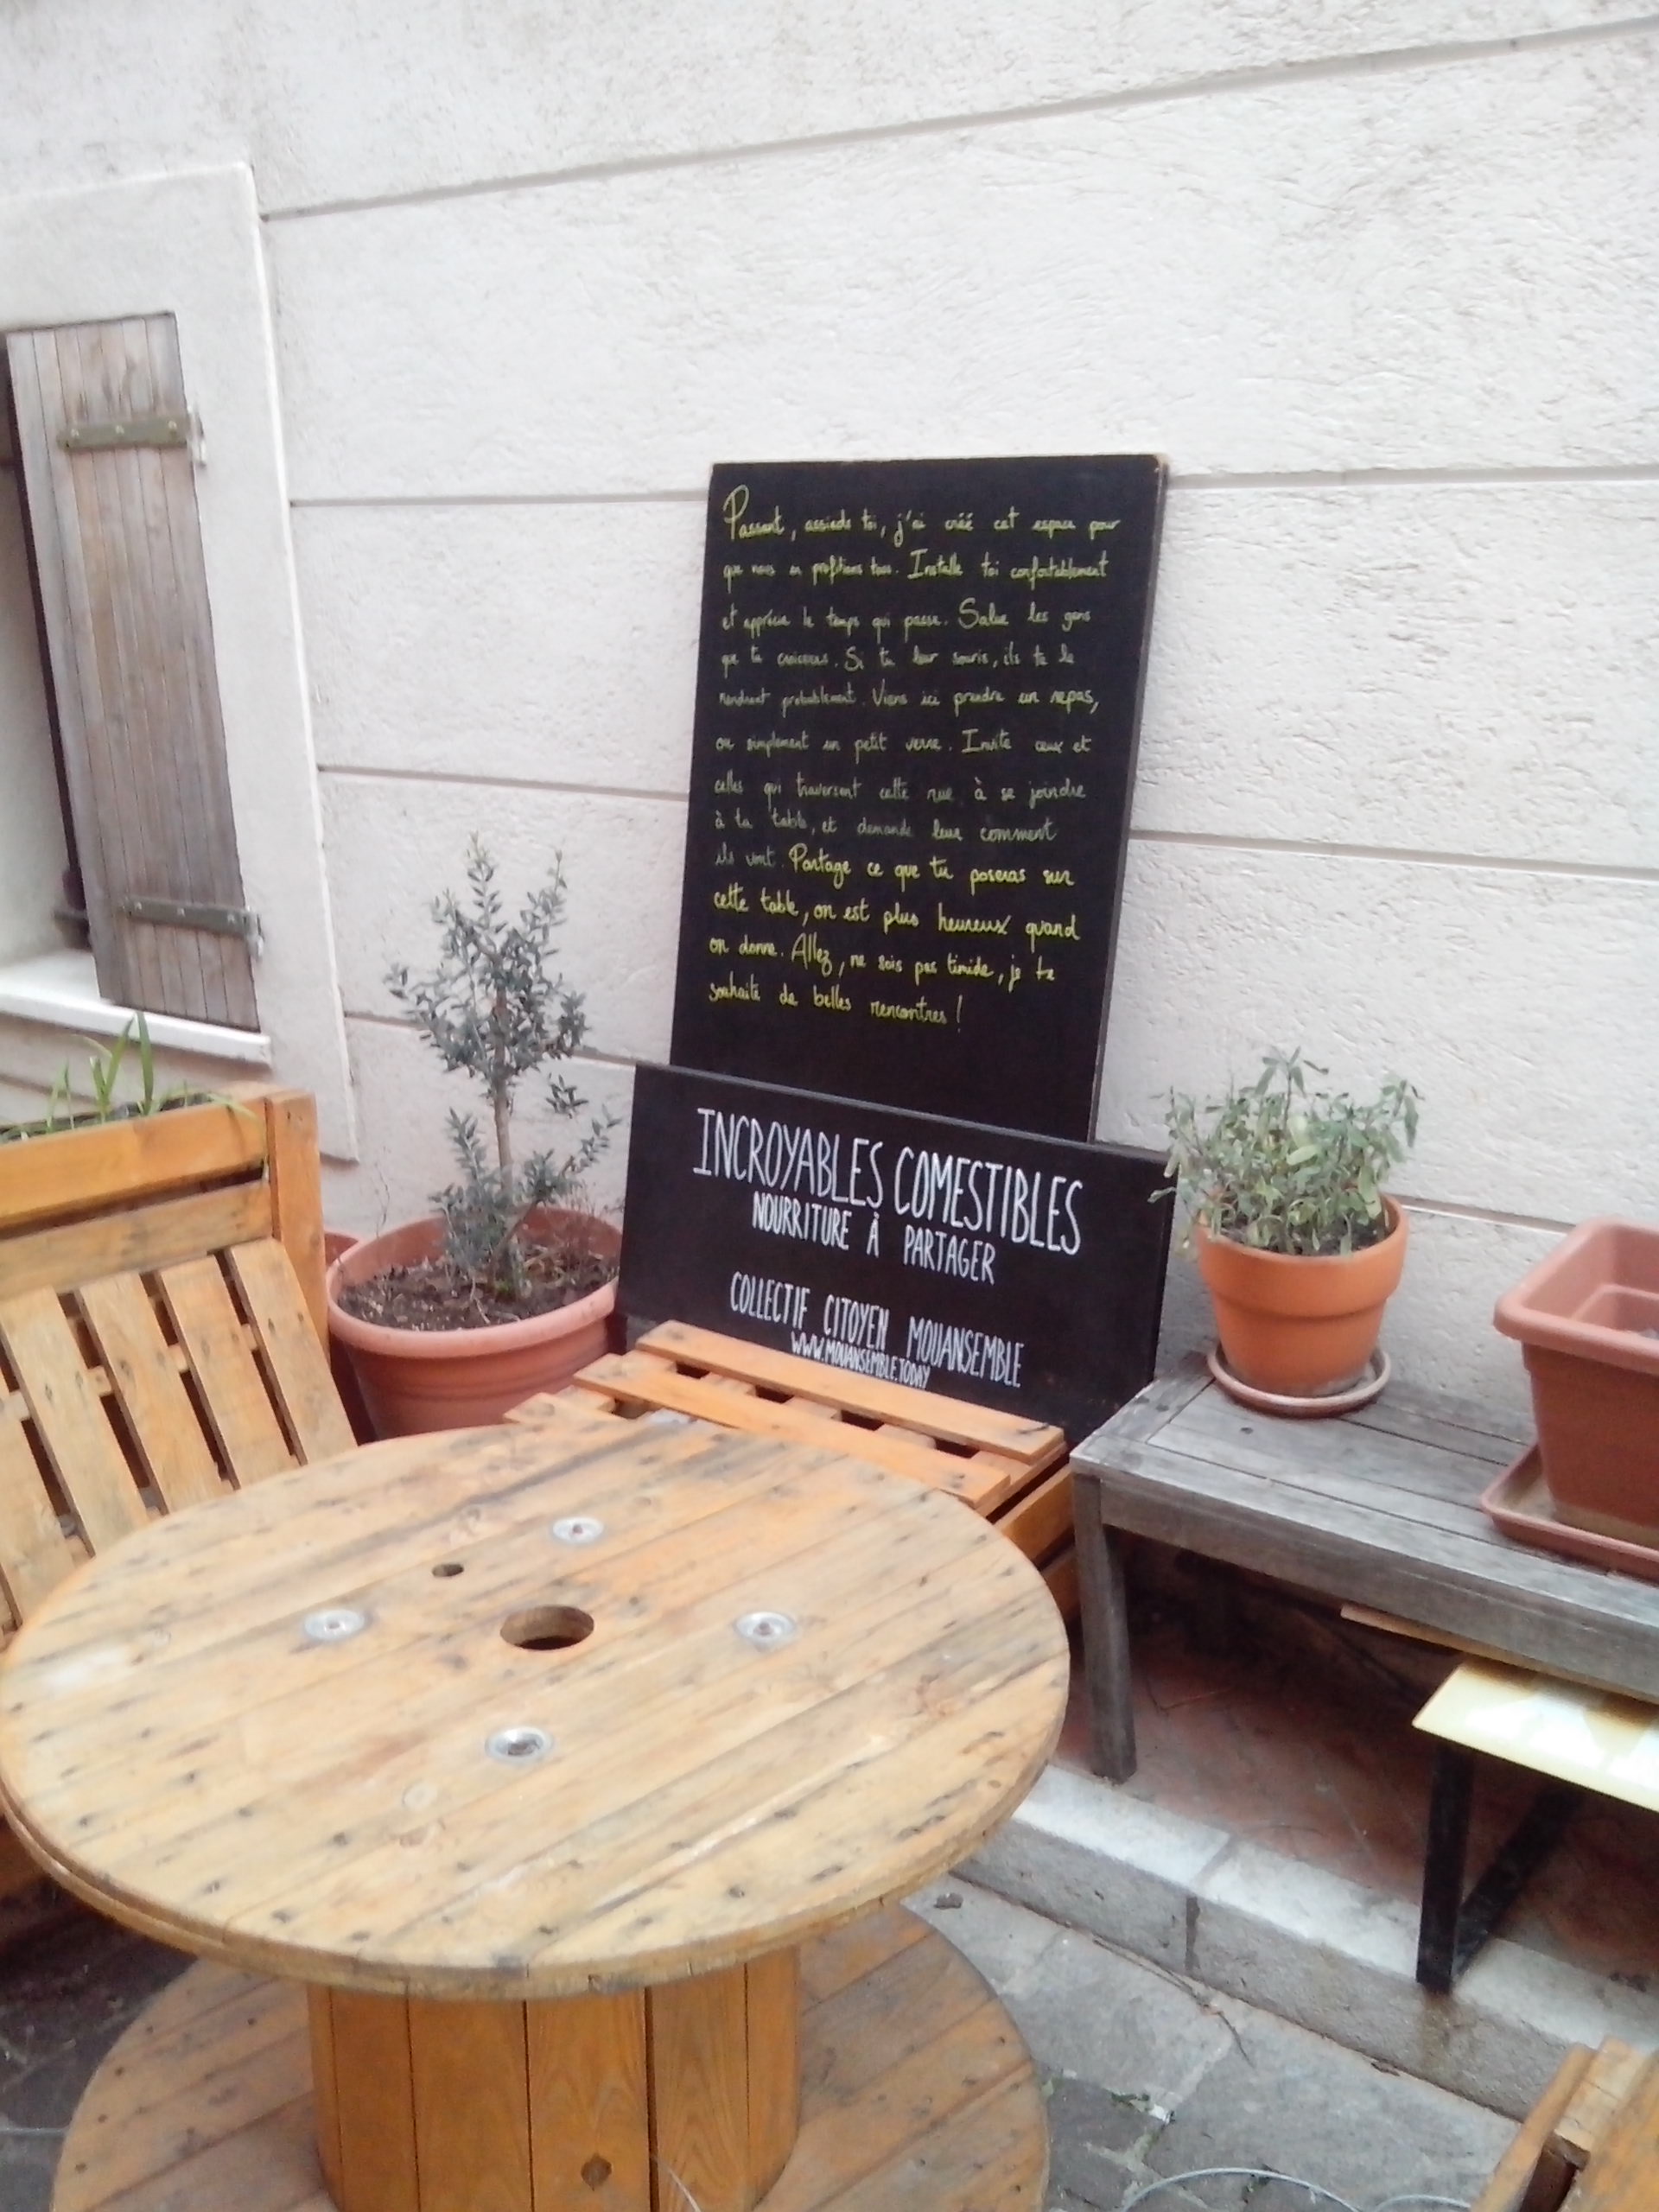 Passant, assieds toi, j'ai créé cet espace pour
que nous en profitions tous. Installe toi confortablement
et apprécie le temps qui passe. Salue les gens
que tu croiseras. Si tu leur souris, ils te le
rendront probablement. Viens ici prendre un repas,
ou simplement un petit verre. Invite ceux et
celles qui traversent cette rue à se joindre
à ta table, et demande leur comment
ils vont. Partage ce que tu poseras sur
cette table, on est plus heureux quand
on donne. Allez, ne sois pas timide, je te
souhaite de belles rencontres !
INCROYABLES COMESTIBLES
NOURRITURE À PARTAGER
COLLECTIF CITOYEN MOUANSEMBLE
WWW.MOUANSEMBLE.TODAY